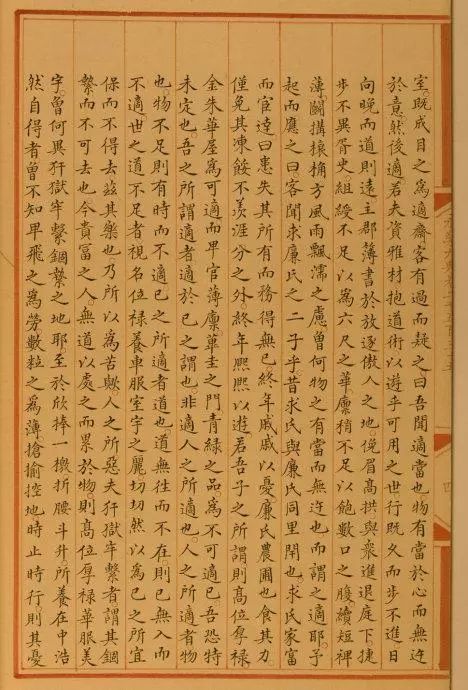 室既成目之為適齋客有過而疑之曰吾聞適當也物有當於心而無迕
於意然後適若夫資雅材抱道術以遊乎可用之世行既久而步不進日
向晚而道則遠主郡簿書於放逐傲人之地俛眉高拱與衆進退庭下捷
步不異胥史組綬不足以為六尺之華廩稍不足以飽數口之腹續短椑
薄闢搆榱桷方風雨飄濡之慮曾何物之有當而無迕也而謂之適耶予
起而應之曰客聞求廉氏之二子乎昔求氏與廉氏同里閈也求氏家富
而官達曰患失其所有而務得無已終年戚戚以憂廉氏農圃也食其力
僅免其凍餒不羨涯分之外終年熙熙以遊若吾子之所謂則高位厚祿
金朱華屋為可適而卑官薄廩蓽圭之門青綠之品為不可適已吾恐特
未定也吾之所謂適者適於已之謂也非適人之所適也人之所適者物
也物不足則有時而不適已之所適者道也道無往而不在則已無入而
不適世之道不足者視名位祿養車服室宇之麗切切然以為已之所宜
保而不得去茲其樂也乃所以為苦歟人之所惡夫犴獄牢繫者謂其錮
繫而不可去也今貴富之人無道以處之而累於物則高位厚祿華服美
宇曾何異犴獄牢繫錮繫之地耶至於欣捧一檄折腰斗升所養在中浩
然自得者曾不知卑飛之為勞數粒之為薄搶揄控地時止時行則其憂